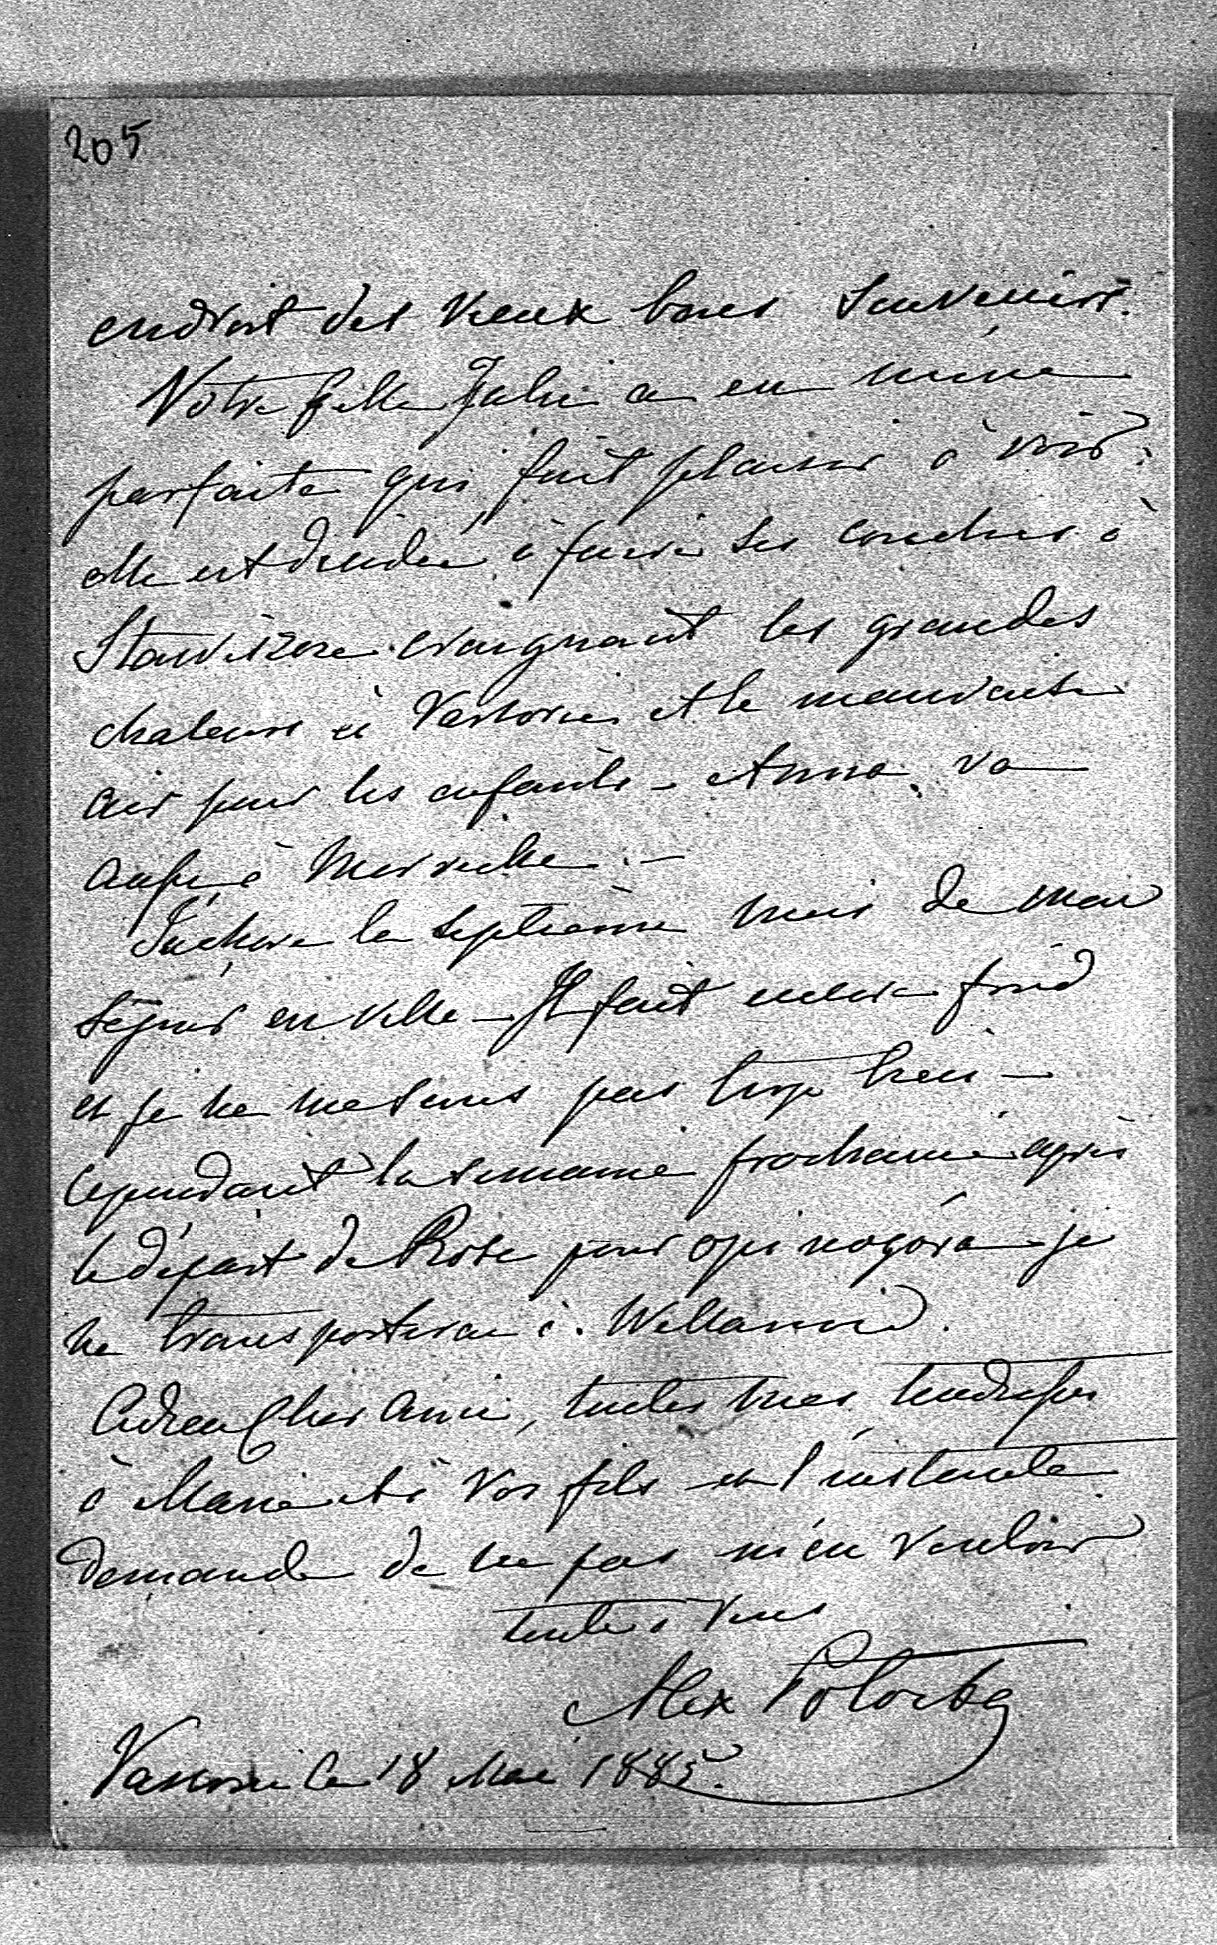 205
endroit des vieux bons souvenirs.
Votre fille Julie a eu mine
parfaite qui fait plaisir à voir;
elle est décidée à faire ses couches à
Stawiszcze craignant les grandes
chaleurs à Varsovie et le mauvais
air pour les enfants – Anna va
aussi à
J'achève le septième mois de mon
séjour en ville – Il fait encore froid
et je ne me sens pas trop bien –
cependant la semaine prochaine après
le départ de Rose pour Opinogóra je
me transporterai à Willanow.
Adieu Cher Ami, toutes mes tendresses
à Marie et à Vos fils et l'instante
demande de ne pas m'en vouloir
toute à Vous
Alex Potocka
Varsovie le 18 Mai 1885.